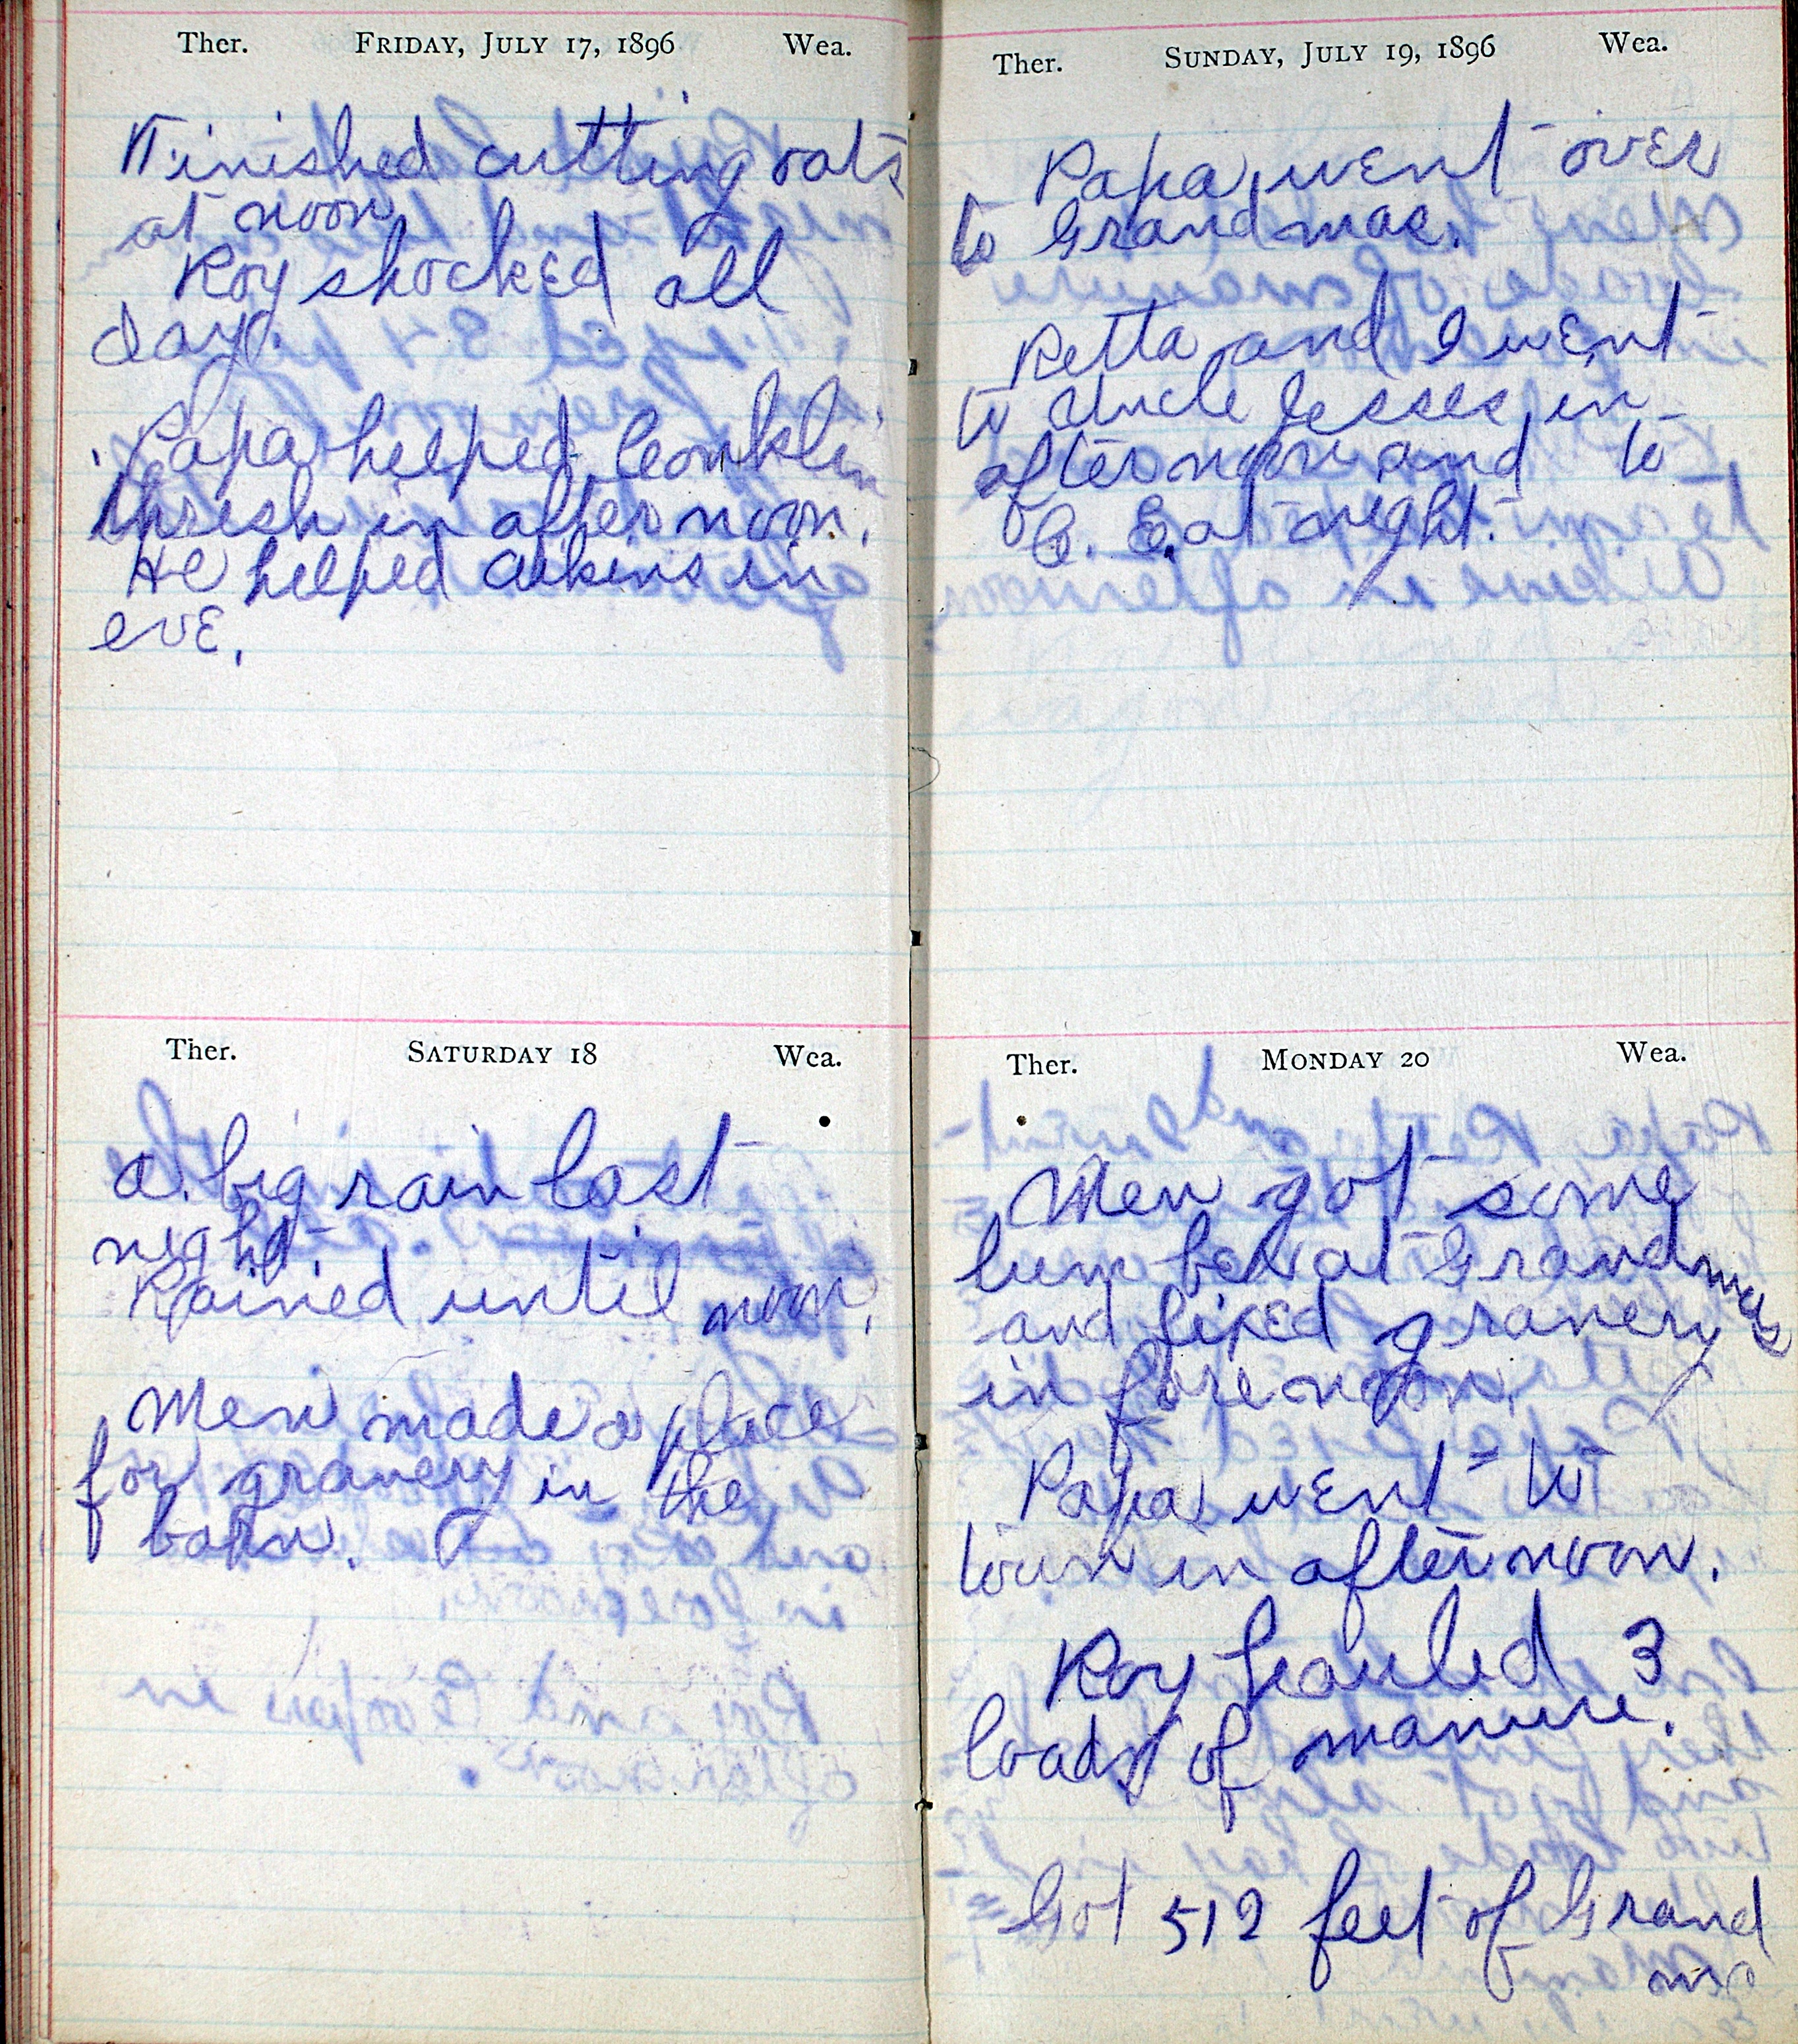 Ther. FRIDAY, JULY 17, 1896 Wea.
Finished cutting oats
at noon
Roy shocked all
day.
Papa helped Conklin
thresh in afternoon.
He helped Aikens in
eve.
Ther. SATURDAY 18 Wea.
A big rain last
night.
Rained until noon.
Men made a place
for granery in the
barn.
Ther. SUNDAY, JULY 19, 1896 Wea.
Papa went over
to Grandmas.
Retta and I went
to Uncle Jesses in
afternoon and to
C. E. at night.
Ther. MONDAY 20 Wea.
Men got some
lumber at Grandmas
and fixed granery
in forenoon.
Papa went to
town in afternoon.
Roy hauled 3
loads of manure.
Got 512 feet of Grand
ma